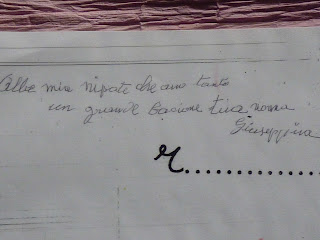 Alla mia nipote che amo tanto
un grande bacione tua nonna
Giuseppina
r..............